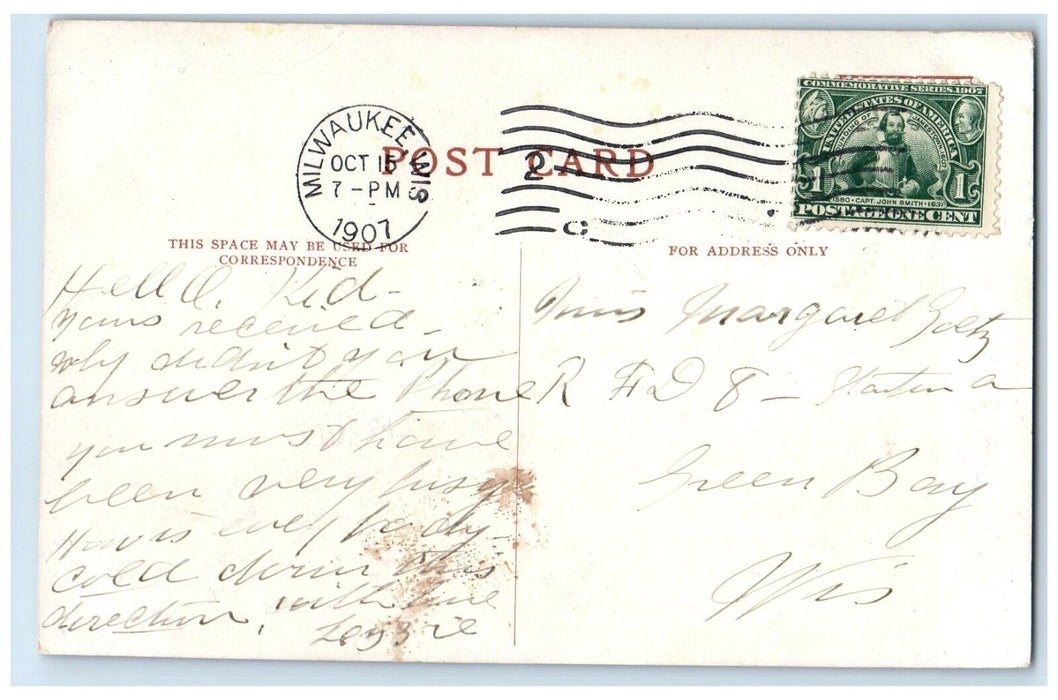 MILWAUKEE, WIS
OCT 15
7-PM
1907
POST CARD
2
C
COMMEMORATIVE SERIES 1907
UNITED STATES OF AMERICA
FOUNDING OF JAMESTOWN 1607
1 1
1580 • CAPT. JOHN SMITH • 1631
POSTAGE ONE CENT
THIS SPACE MAY BE USED FOR
CORRESPONDENCE
FOR ADDRESS ONLY
Hello, Kid-
yours received-
why didn't you
answer the Phone
you must have
been very busy
How is every body-
cold down this
direction, with love
Miss Margaret Goltz
R F D 8 - Station a
Green Bay
Wis